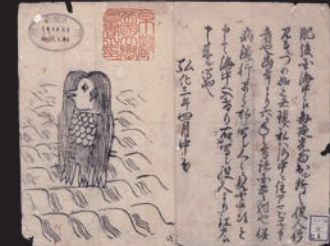 肥後国海中え毎夜光物出ル所之役人行
見るニづの如く者現ス私ハ海中ニ住アマビヱト申
者也當年より六ヶ年之間諸国豊作也併
病流行早々私ヲ写シ人々ニ見セ候得と
申て海中へ入けり右ハ写シ役人より江戸え
申来ル写也
弘化三年四月中旬